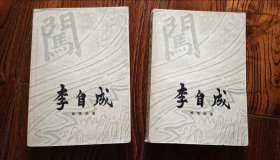 闖
李自成
姚雪垠著
闖
李自成
姚雪垠著